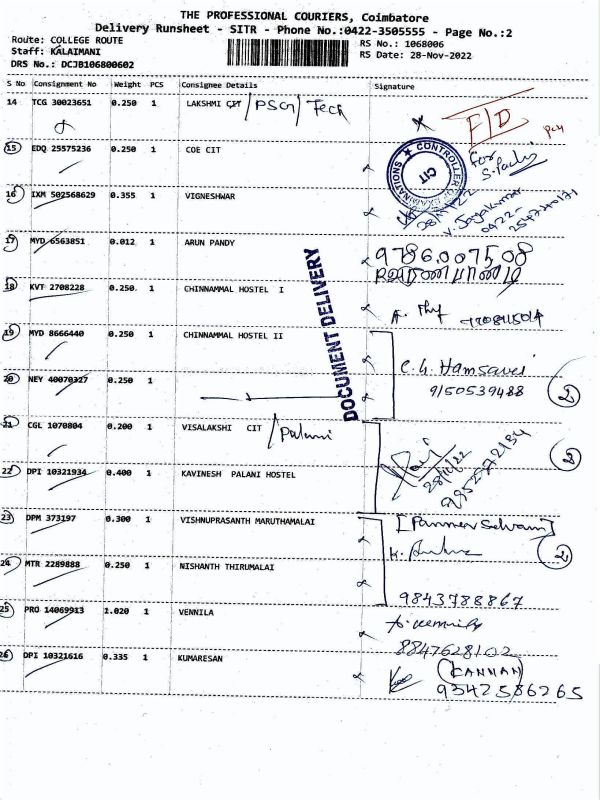 THE PROFESSIONAL COURIERS, Coimbatore
Delivery Runsheet - SITR - Phone No.:0422-3505555 - Page No.:2
Route: COLLEGE ROUTE RS No.: 1068006
Staff: KALAIMANI RS Date: 28-Nov-2022
DRS No.: DCJB106800602
S No Consignment No Weight PCS Consignee Details Signature
14 TCG 30023651 0.250 1 LAKSHMI CIT / PSG / Tech F/D
15 EDQ 25575236 0.250 1 COE CIT for
CONTROLLER OF EXAMINATIONS CIT
16 IXM 502568629 0.355 1 VIGNESHWAR 28/11/22
17 MYD 6563851 0.012 1 ARUN PANDY 9786007508
18 KVT 2708228 0.250 1 CHINNAMMAL HOSTEL I
19 MYD 8666440 0.250 1 CHINNAMMAL HOSTEL II
C.G. Hamsavei
20 NEY 40070327 0.250 1 9150539488 2
DOCUMENT DELIVERY
21 CGL 1070804 0.200 1 VISALAKSHI CIT / Palani
28/11/22
22 DPI 10321934 0.400 1 KAVINESH PALANI HOSTEL
23 DPM 373197 0.300 1 VISHNUPRASANTH MARUTHAMALAI [Panneer Selvam]
2
24 MTR 2289888 0.250 1 NISHANTH THIRUMALAI
9843788867
25 PRO 14069913 1.020 1 VENNILA
8847628102
26 DPI 10321616 0.335 1 KUMARESAN (CANNAN)
9342586265